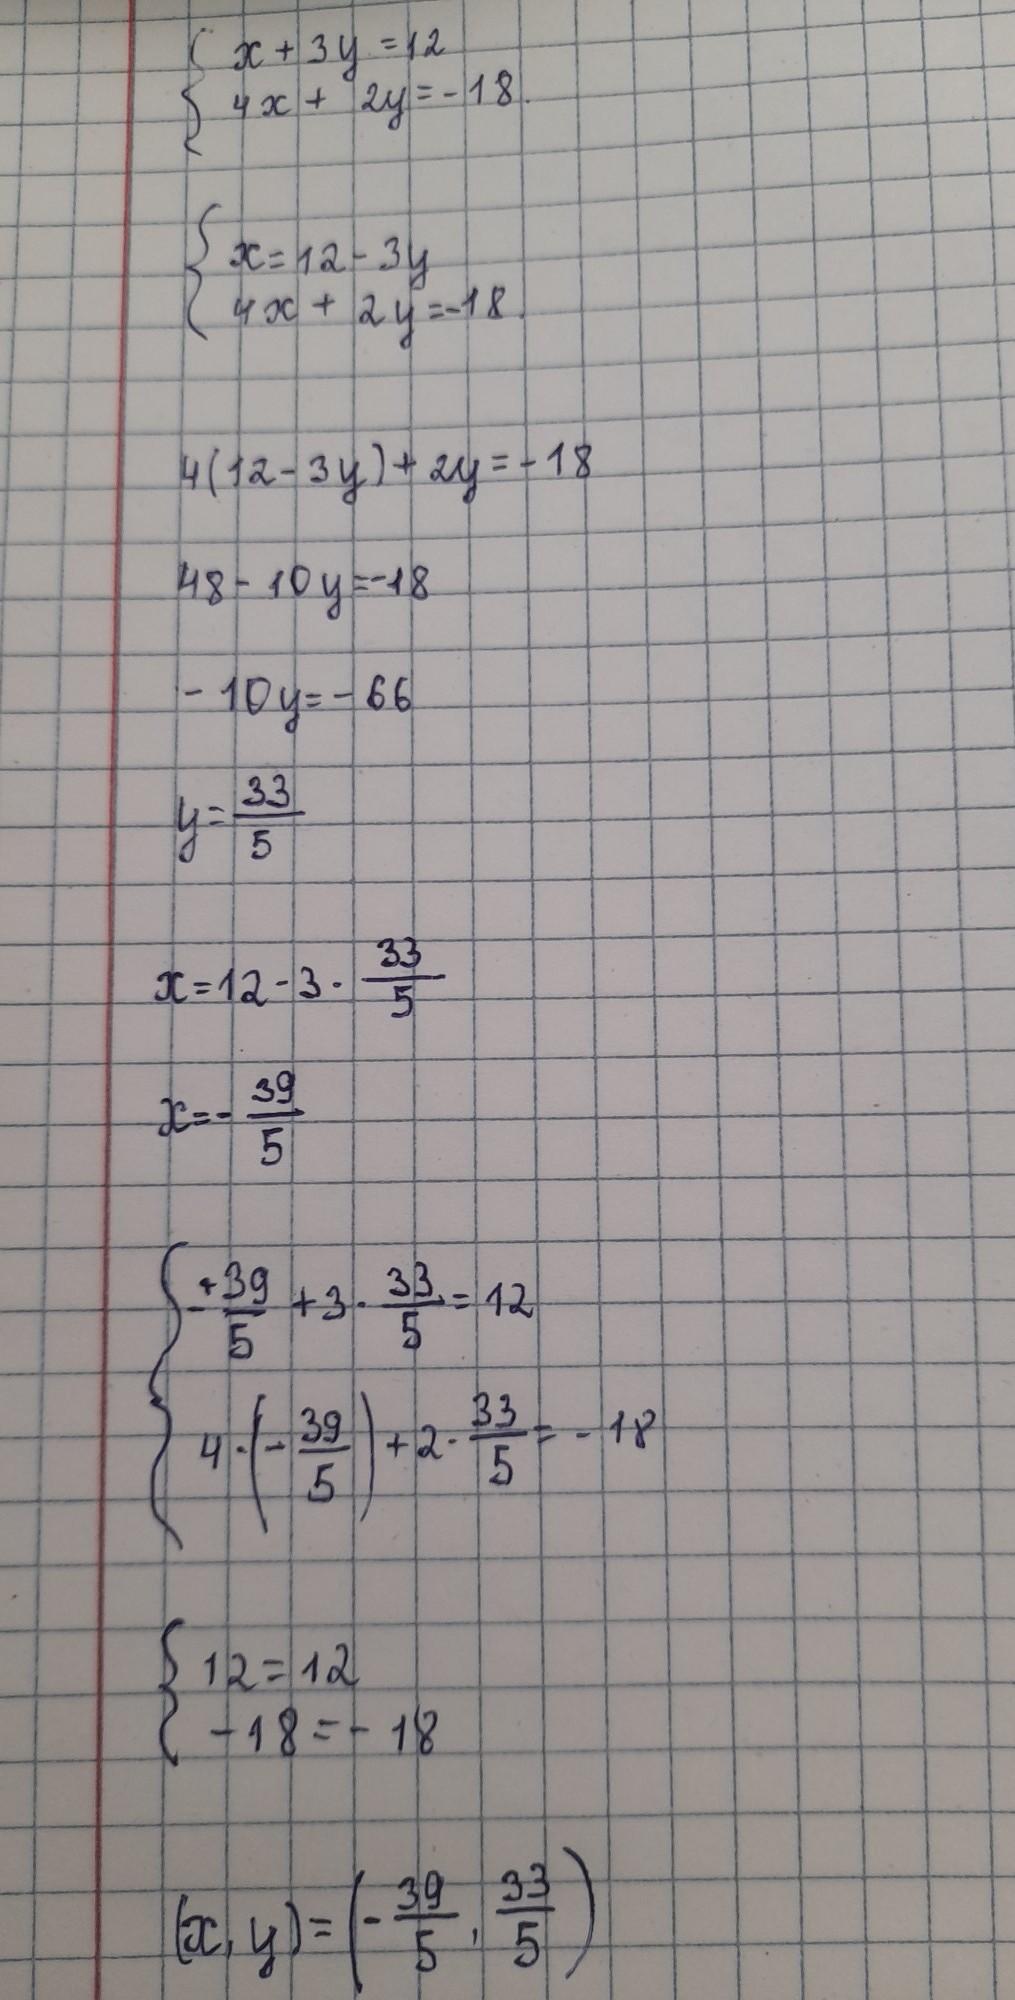 { x + 3y = 12
4x + 2y = -18.
{ x = 12 - 3y
4x + 2y = -18
4(12 - 3y) + 2y = -18
48 - 10y = -18
- 10y = - 66
y = 33/5
x = 12 - 3 · 33/5
x = - 39/5
{ - 39/5 + 3 · 33/5 = 12
4 · (- 39/5) + 2 · 33/5 = - 18
{ 12 = 12
- 18 = - 18
(x, y) = (- 39/5, 33/5)